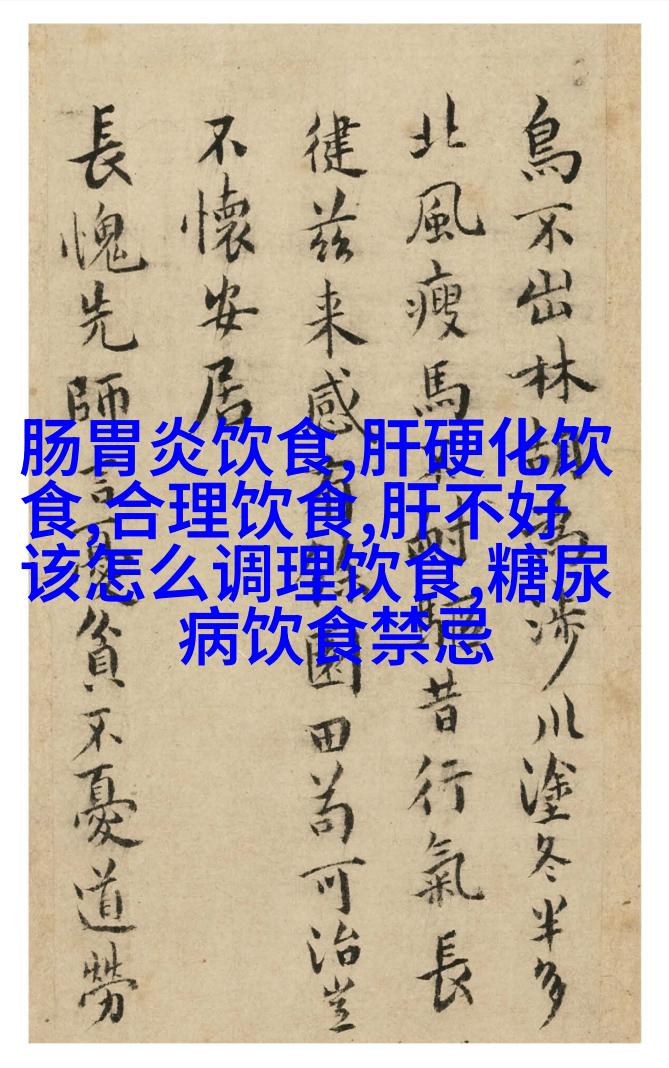 鳥不出林胡為涉川塗冬半多
北風瘦馬耐昔行氣長
健茲来感園田苟可治豈
不懷安居
長愧先師言憂貧不憂道勞
肠胃炎饮食,肝硬化饮
食,合理饮食,肝不好
该怎么调理饮食,糖尿
病饮食禁忌